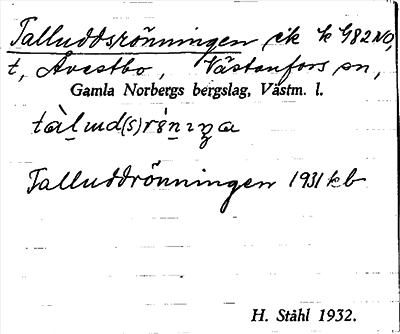 Talluddsrönningen ek k G82NO,
t, Åvestbo, Västanfors sn,
Gamla Norbergs bergslag, Västm. l.
tàl̠ɯd(s)rö́n̠ɪŋa
Talluddrönningen 1931 kb
H. Ståhl 1932.